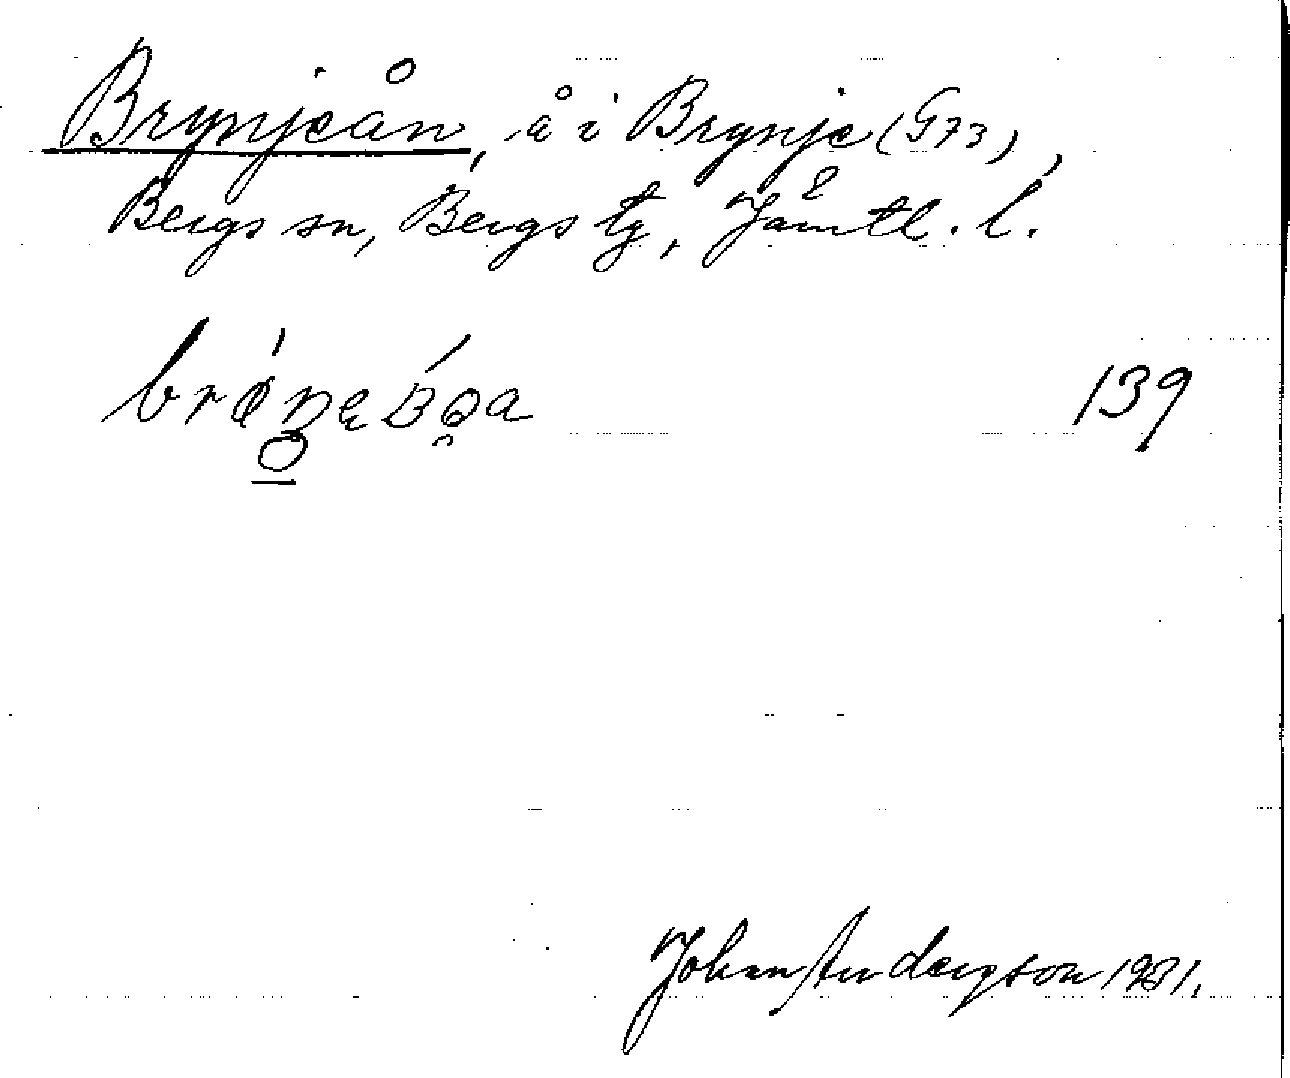 Brynjeån, å i Brynje (G73),
Bergs sn, Bergs tg, Jämtl. l.
139
Johan Anderson 1931.